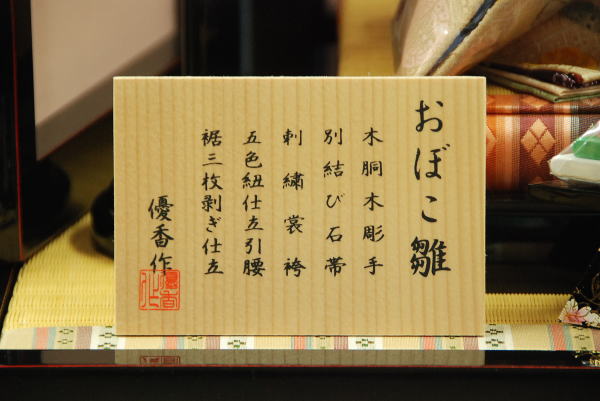 おぼこ雛
木胴木彫手
別結び石帯
刺繍裳袴
五色紐仕立引腰
裾三枚剥ぎ仕立
優香作
優香作